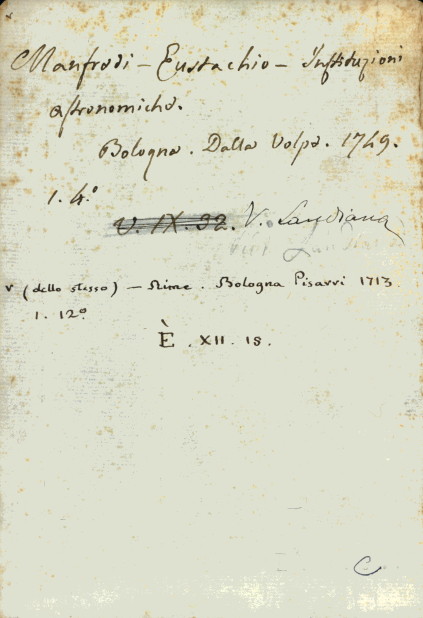 Manfredi - Eustachio - Instituzioni
astronomiche.
Bologna. Dalla Volpe. 1749.
1. 4.º
V. IX. 32. V. Landiana
v (dello stesso) - Rime. Bologna Pisarri 1713
1. 12º
È. XII. 18.
C